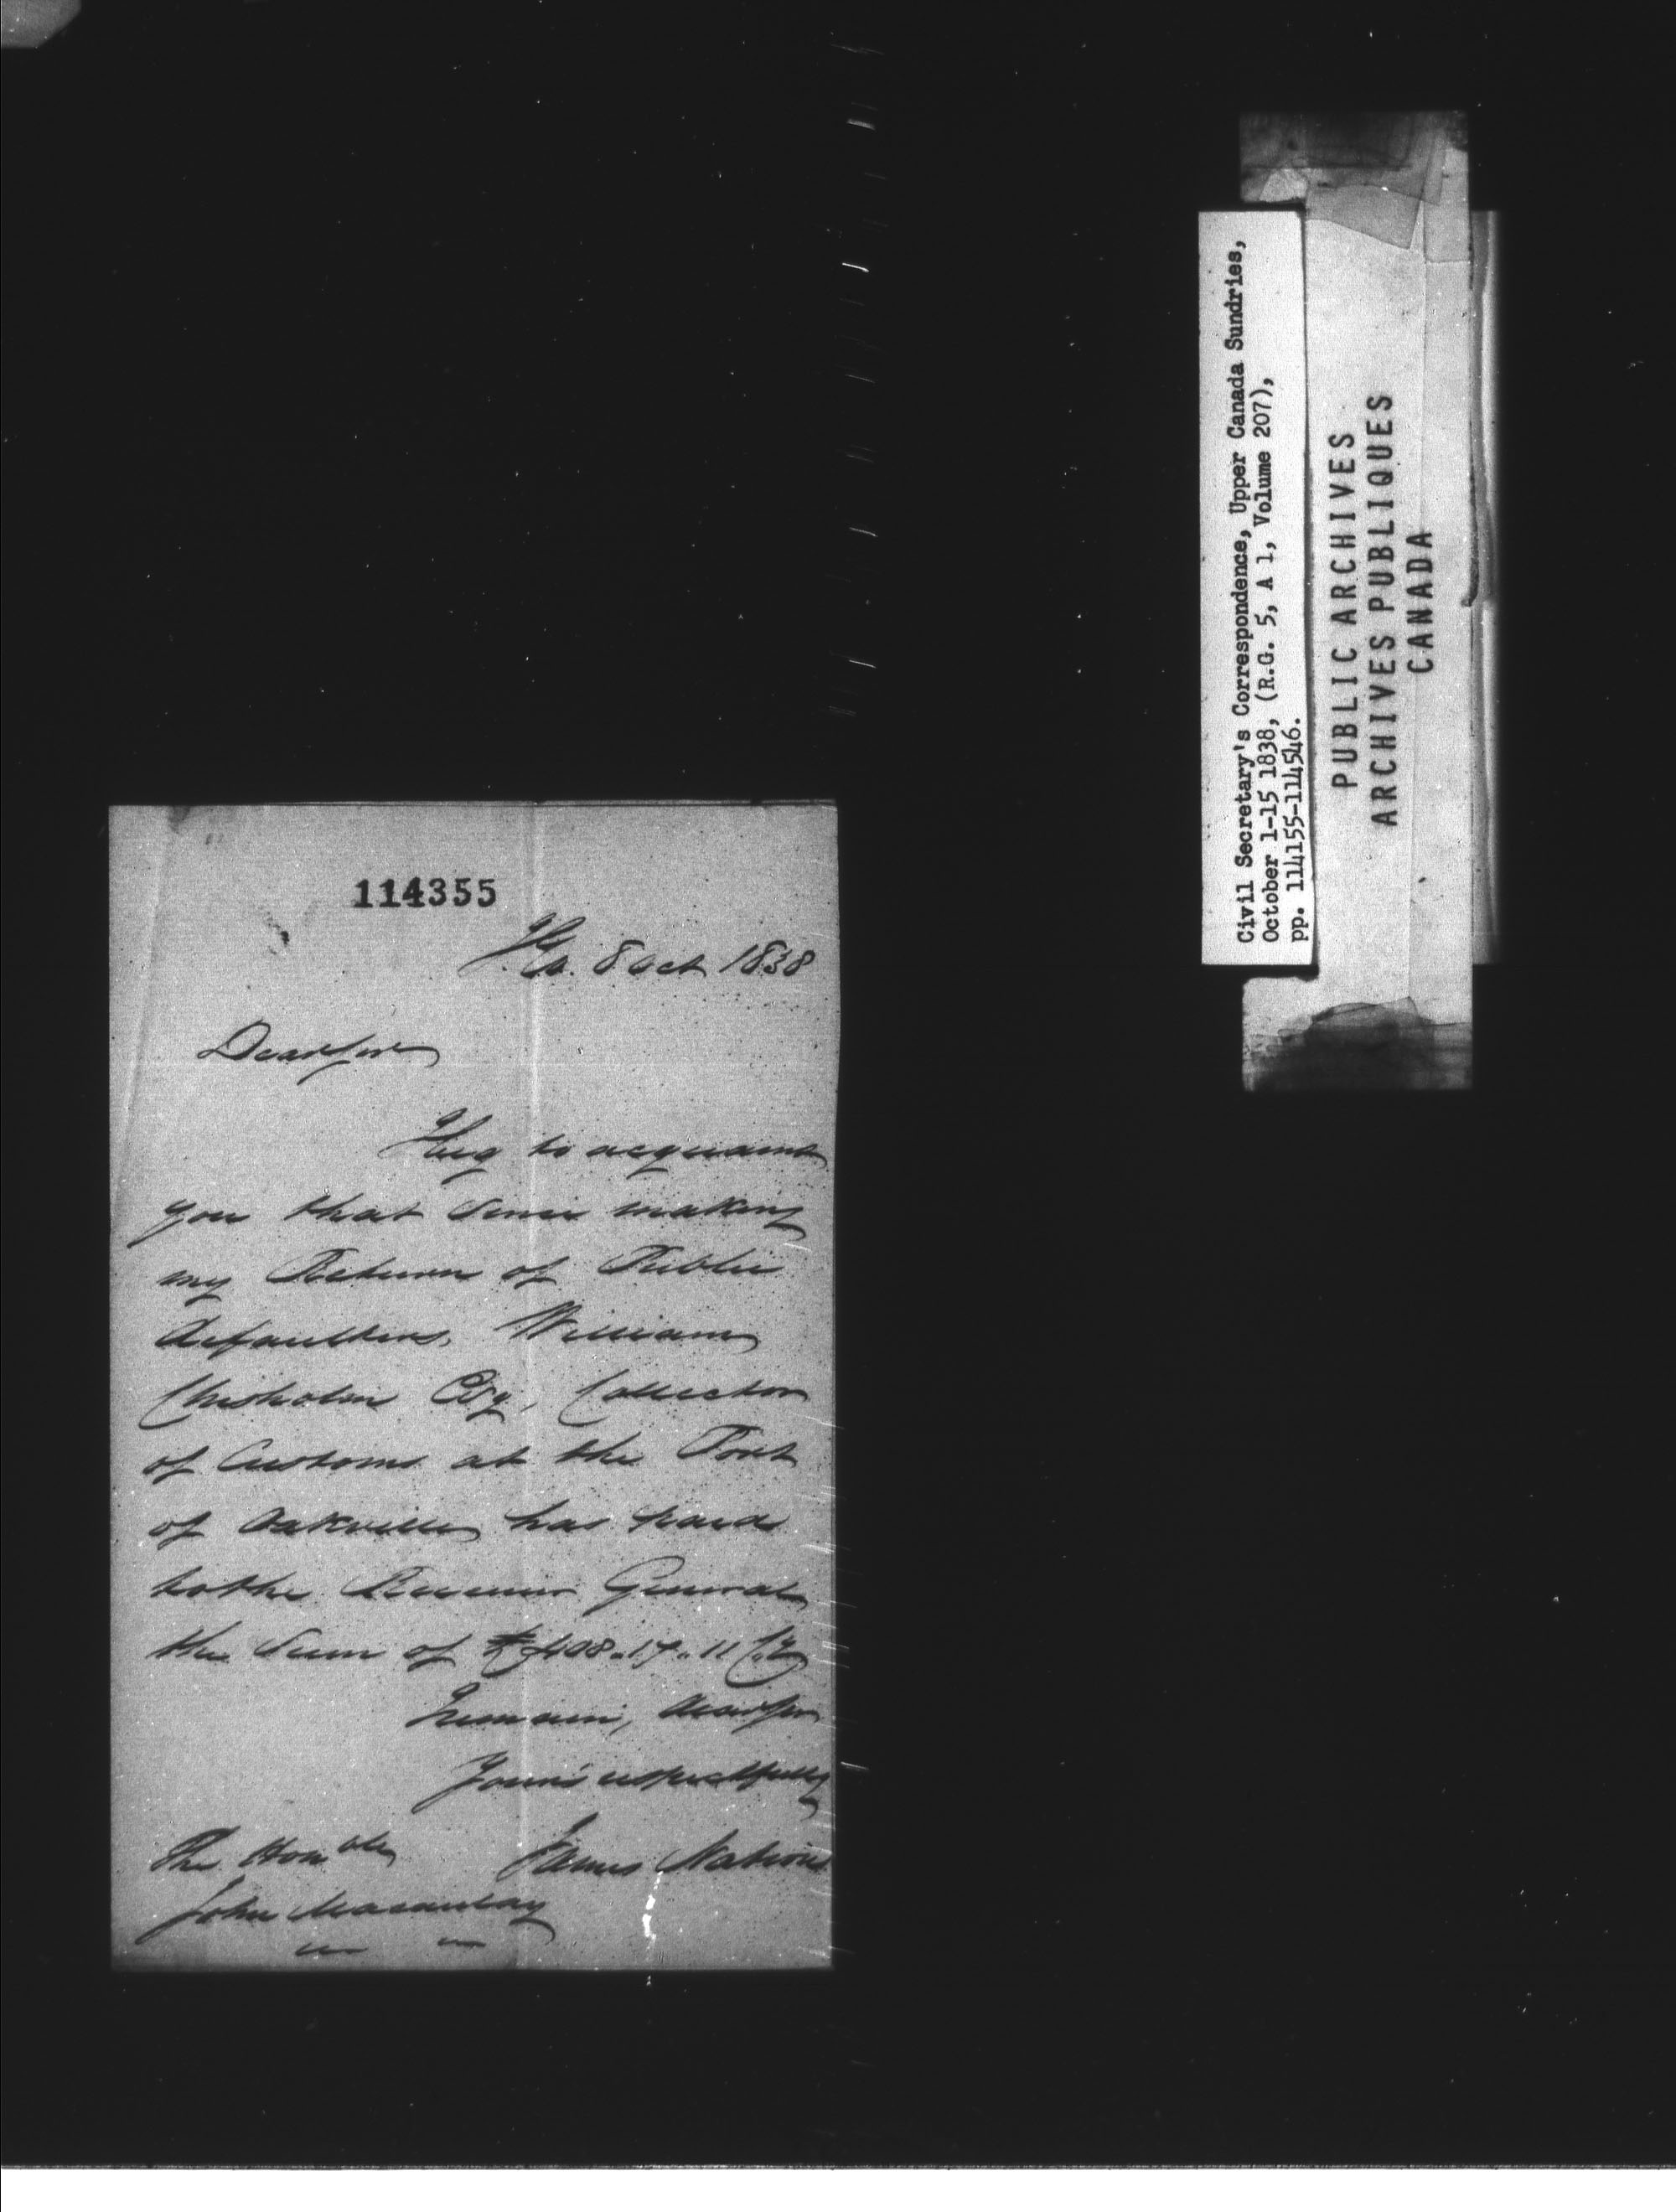 114355
I.G.O. 8 Oct 1838
Dear Sir
I beg to acquaint
you that since making
my Return of Public
defaulters, William
Chisholm Esq, Collector
of Customs at the Port
of Oakville has paid
to the Receiver General
the Sum of £408.17.11 Cy
I remain, dear Sir
Your's respectfully
James Nation
The Honble
John Macaulay
Civil Secretary's Correspondence, Upper Canada Sundries,
October 1-15 1838, (R.G. 5, A 1, Volume 207),
pp. 114155-114546.
PUBLIC ARCHIVES
ARCHIVES PUBLIQUES
CANADA